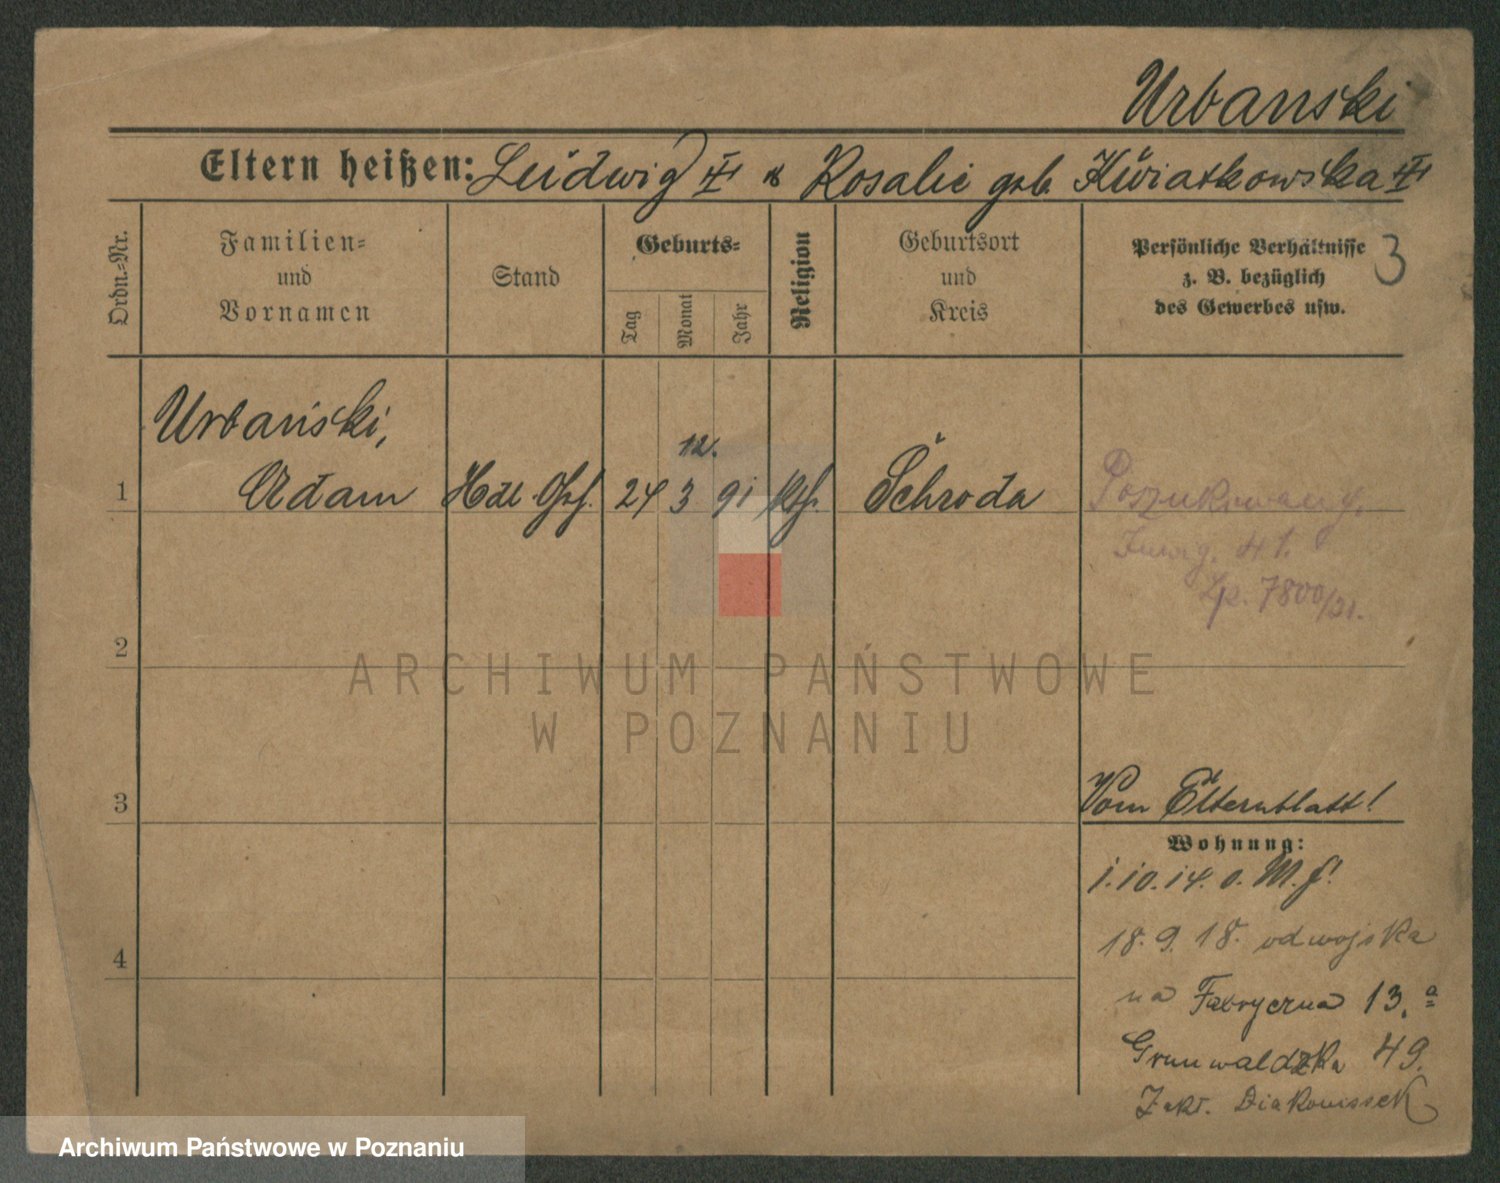 Urbanski
Eltern heißen: Ludwig & Rosalie geb. Kwiatkowska
Ordn.-Nr.
Familien- und Vornamen
Stand
Geburts-
Tag
Monat
Jahr
Religion
Geburtsort und Kreis
Persönliche Verhältnisse z. B. bezüglich des Gewerbes usw.
3
Urbański,
12.
1 Adam Hdl. Ghf. 24 3 91 kth. Schroda
Poszukiwany.
41.
Lp. 7800/21.
2
ARCHIWUM PAŃSTWOWE
W POZNANIU
3
Vom Elternblatt!
Wohnung:
1.10.14. o. M. f.
18.9.18. od wojska
4
na Fabryczna 13.a
Grunwaldzka 49.
Zakł. Diakonissek
Archiwum Państwowe w Poznaniu